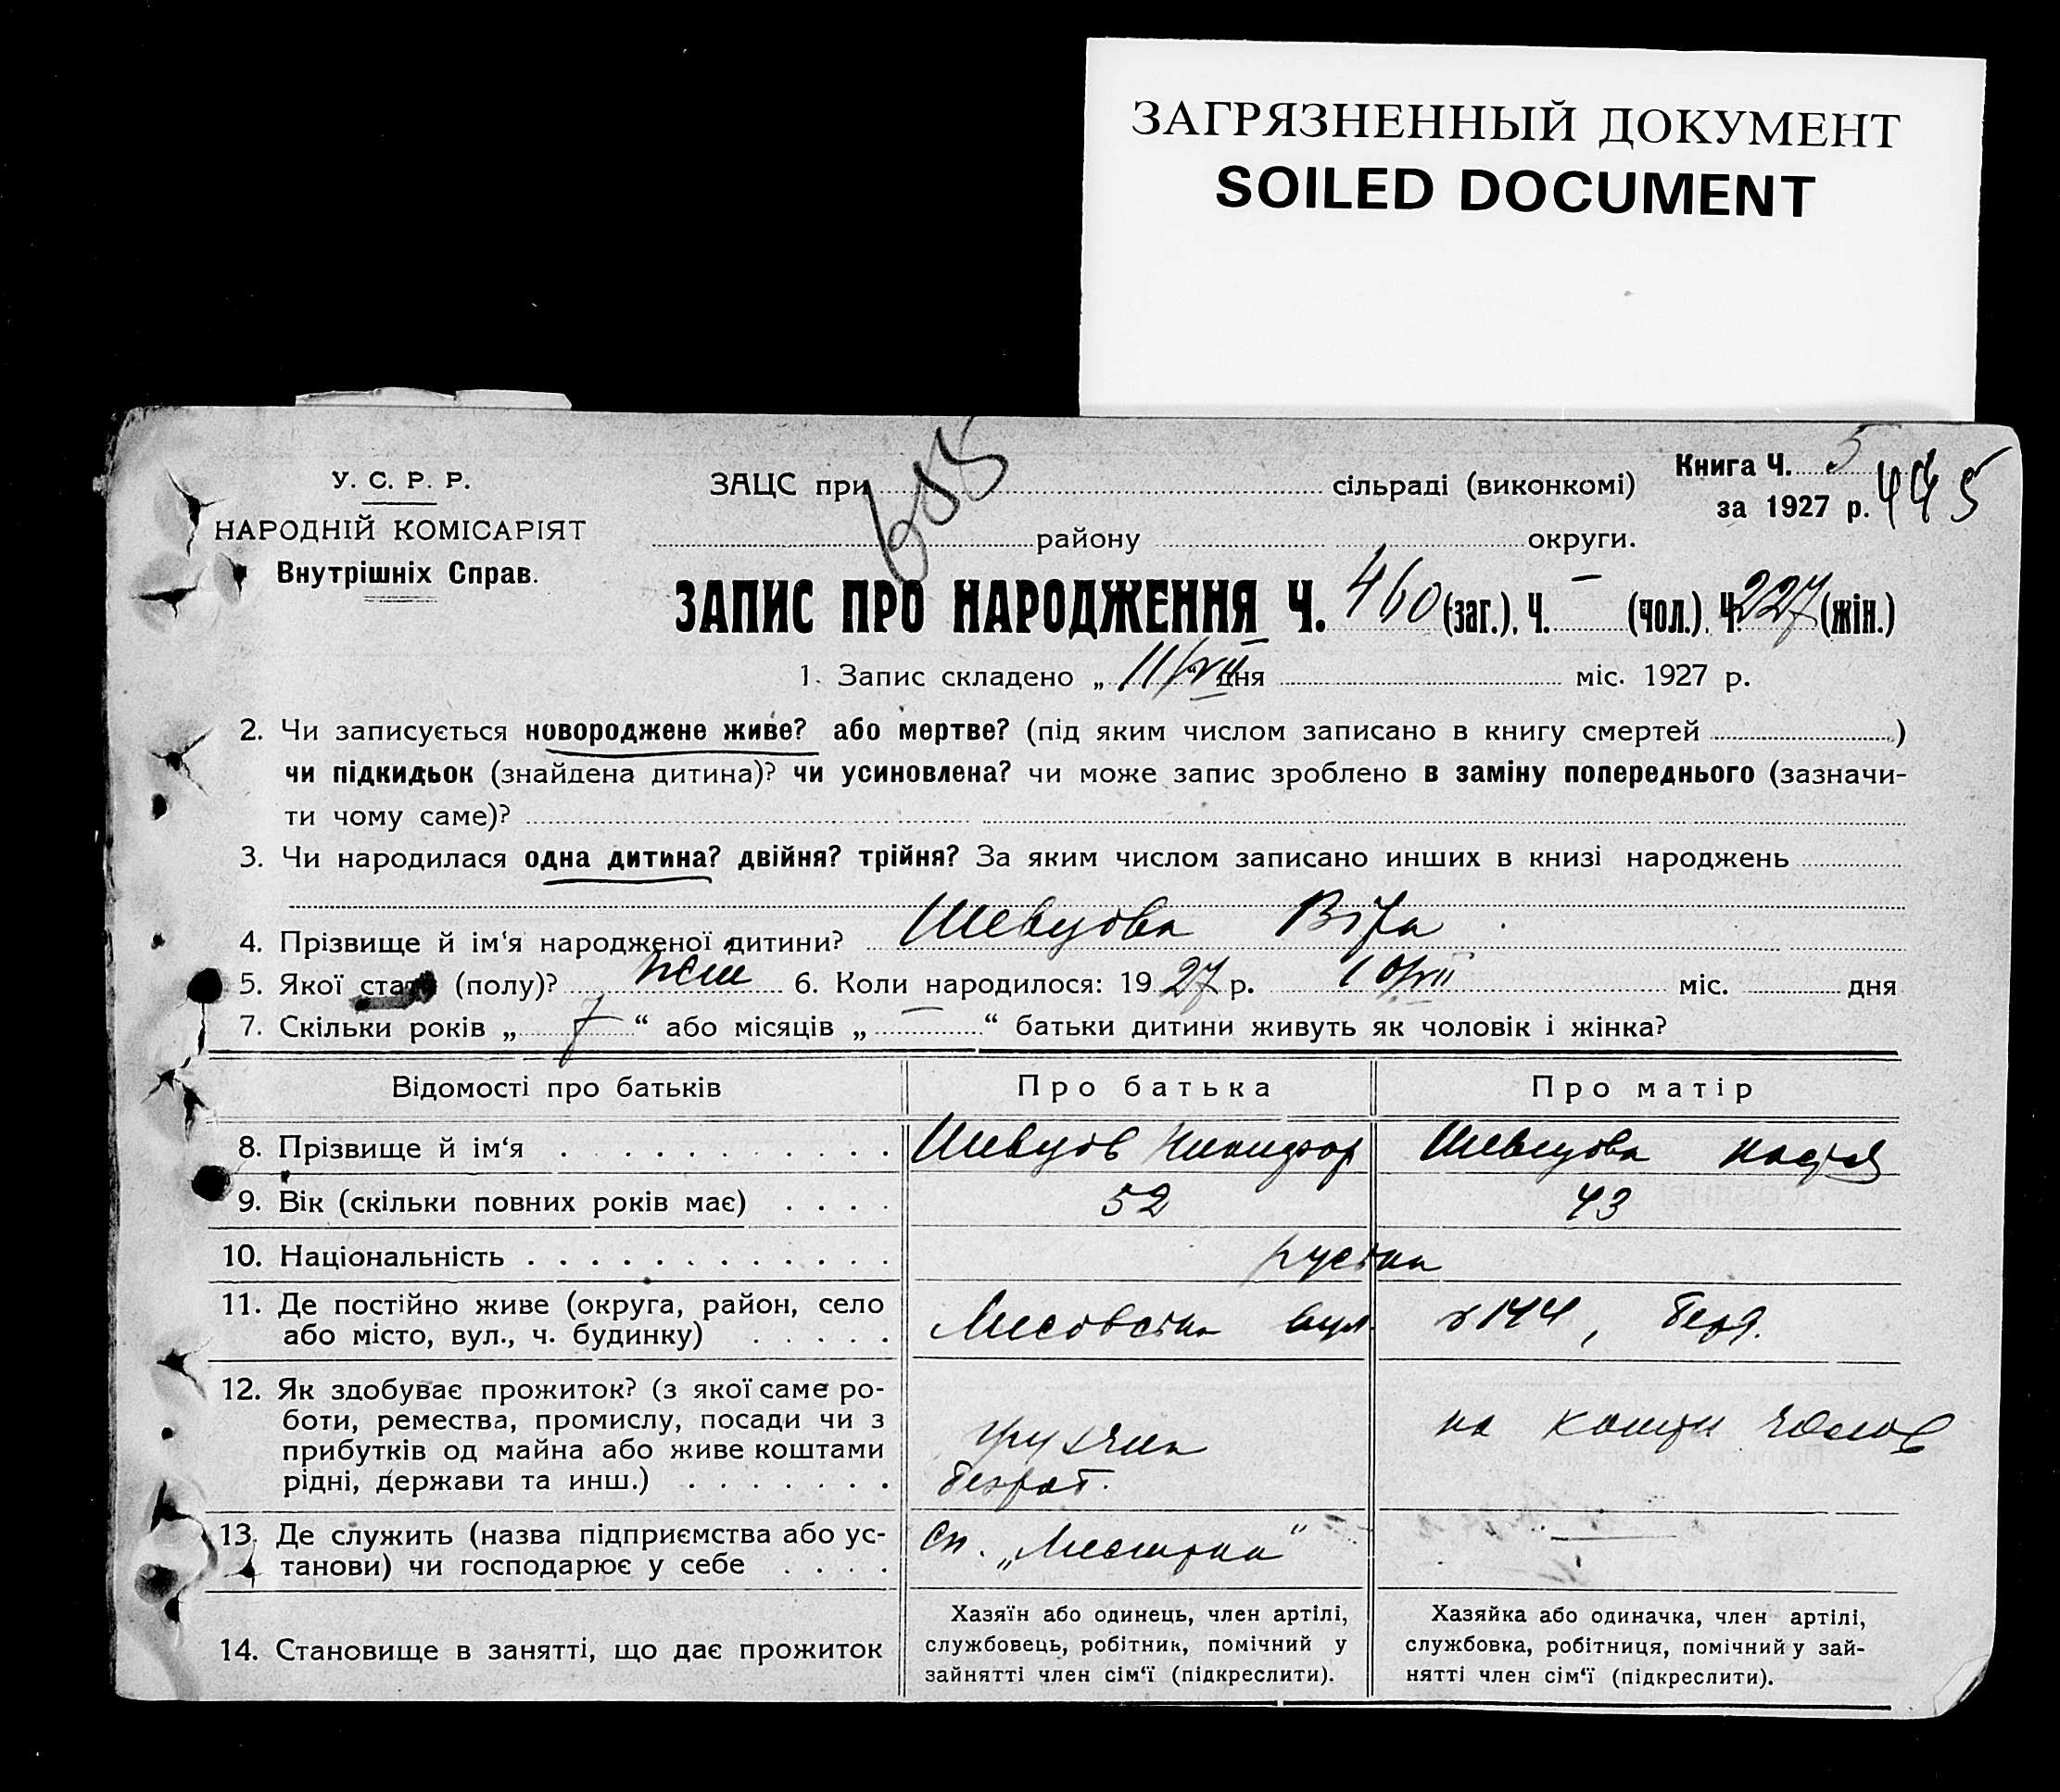 ЗАГРЯЗНЕННЫЙ ДОКУМЕНТ
SOILED DOCUMENT
У. С. Р. Р.
НАРОДНІЙ КОМІСАРІЯТ
Внутрішніх Справ.
ЗАЦС при сільраді (виконкомі)
району округи.
Книга Ч. 5
за 1927 р. 445
ЗАПИС ПРО НАРОДЖЕННЯ Ч. 460 (заг.), Ч. — (чол.), Ч. 227 (жін.)
1. Запис складено „ 11/VII “ дня міс. 1927 р.
2. Чи записується новороджене живе? або мертве? (під яким числом записано в книгу смертей )
чи підкидьок (знайдена дитина)? чи усиновлена? чи може запис зроблено в заміну попереднього (зазначи-
ти чому саме)?
3. Чи народилася одна дитина? двійня? трійня? За яким числом записано инших в книзі народжень
4. Прізвище й ім‘я народженої дитини? Шевцова Віра
5. Якої стати (полу)? жін 6. Коли народилося: 1927 р. 10/VII міс. дня
7. Скільки років „ 7 “ або місяців „ — “ батьки дитини живуть як чоловік і жінка?
Відомості про батьків Про батька Про матір
8. Прізвище й ім‘я Шевцов Никифор Шевцова
9. Вік (скільки повних років має) 52 43
10. Національність руська
11. Де постійно живе (округа, район, село
або місто, вул., ч. будинку) Лисовська вул. 144,
12. Як здобуває прожиток? (з якої саме ро-
боти, ремества, промислу, посади чи з
прибутків од майна або живе коштами
рідні, держави та инш.) безроб. на кошти чолов
13. Де служить (назва підприємства або ус-
танови) чи господарює у себе —
14. Становище в занятті, що дає прожиток
Хазяїн або одинець, член артілі,
службовець, робітник, помічний у
зайнятті член сім‘ї (підкреслити).
Хазяйка або одиначка, член артілі,
службовка, робітниця, помічний у зай-
нятті член сім‘ї (підкреслити).